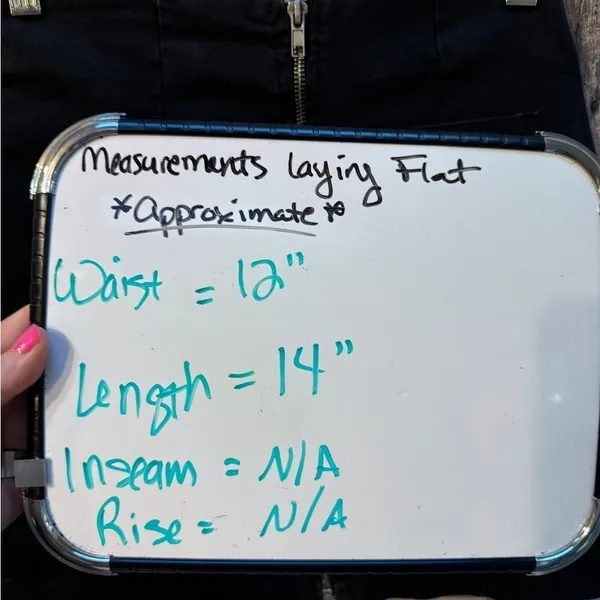 Measurements Laying Flat
*Approximate*
Waist = 12"
Length = 14"
Inseam = N/A
Rise = N/A